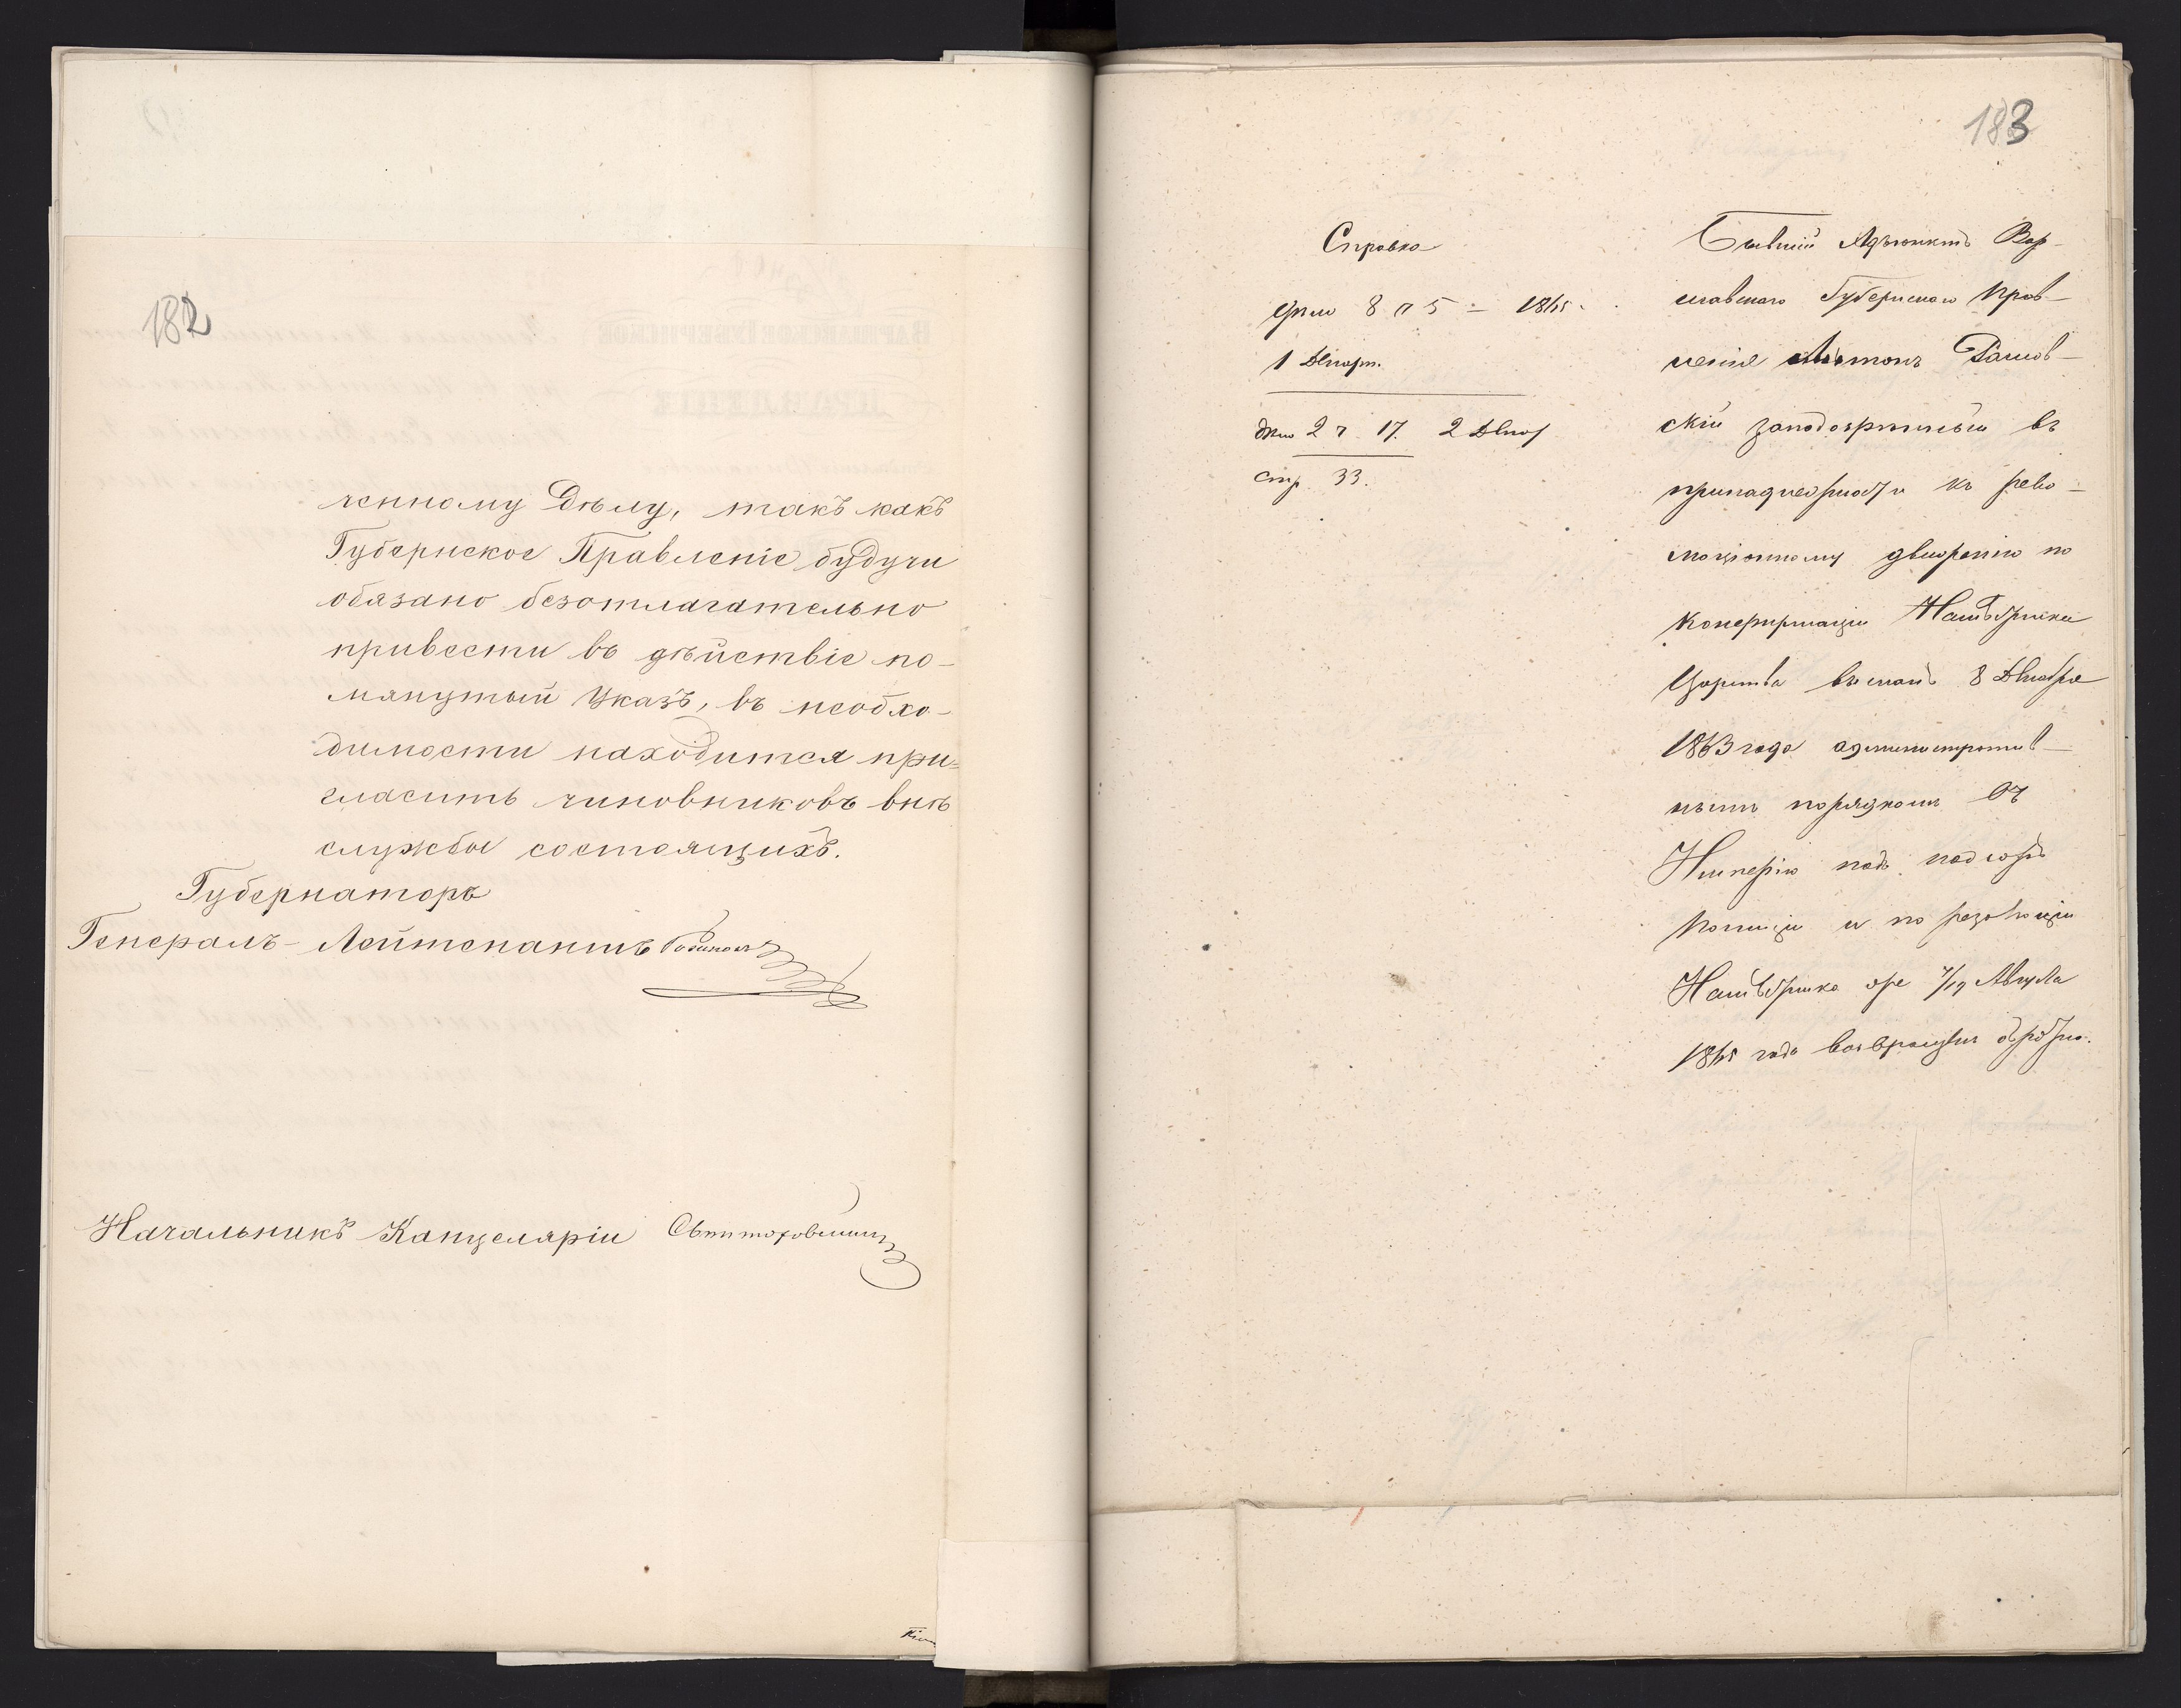 182
ченному Дѣлу, такъ какъ
Губернское Правленіе будучи
обязано безотлагательно
привести въ дѣйствіе по-
мянутый Указъ, въ необхо-
димости находится при=
гласить чиновниковъ внѣ
службы состоящихъ.
Губернаторъ
Генералъ-Лейтенантъ
Начальникъ Канцеляріи
183
Справка
8 5 - 1865.
1
2 17. 2
стр 33.
Бывшій Адъюнктъ Вар-
шавскаго Губернскаго Прав-
ленія Антонъ
скій заподозрѣнный въ
принадлежности къ рево-
люціонному движенію по
конфирмаціи Намѣстника
Царства высланъ 8 Декабря
1863 года административ-
нымъ порядкомъ въ
Имперію подъ надзоръ
Полиціи и по резолюціи
Намѣстника Августа
1865 года возвращенъ обратно.